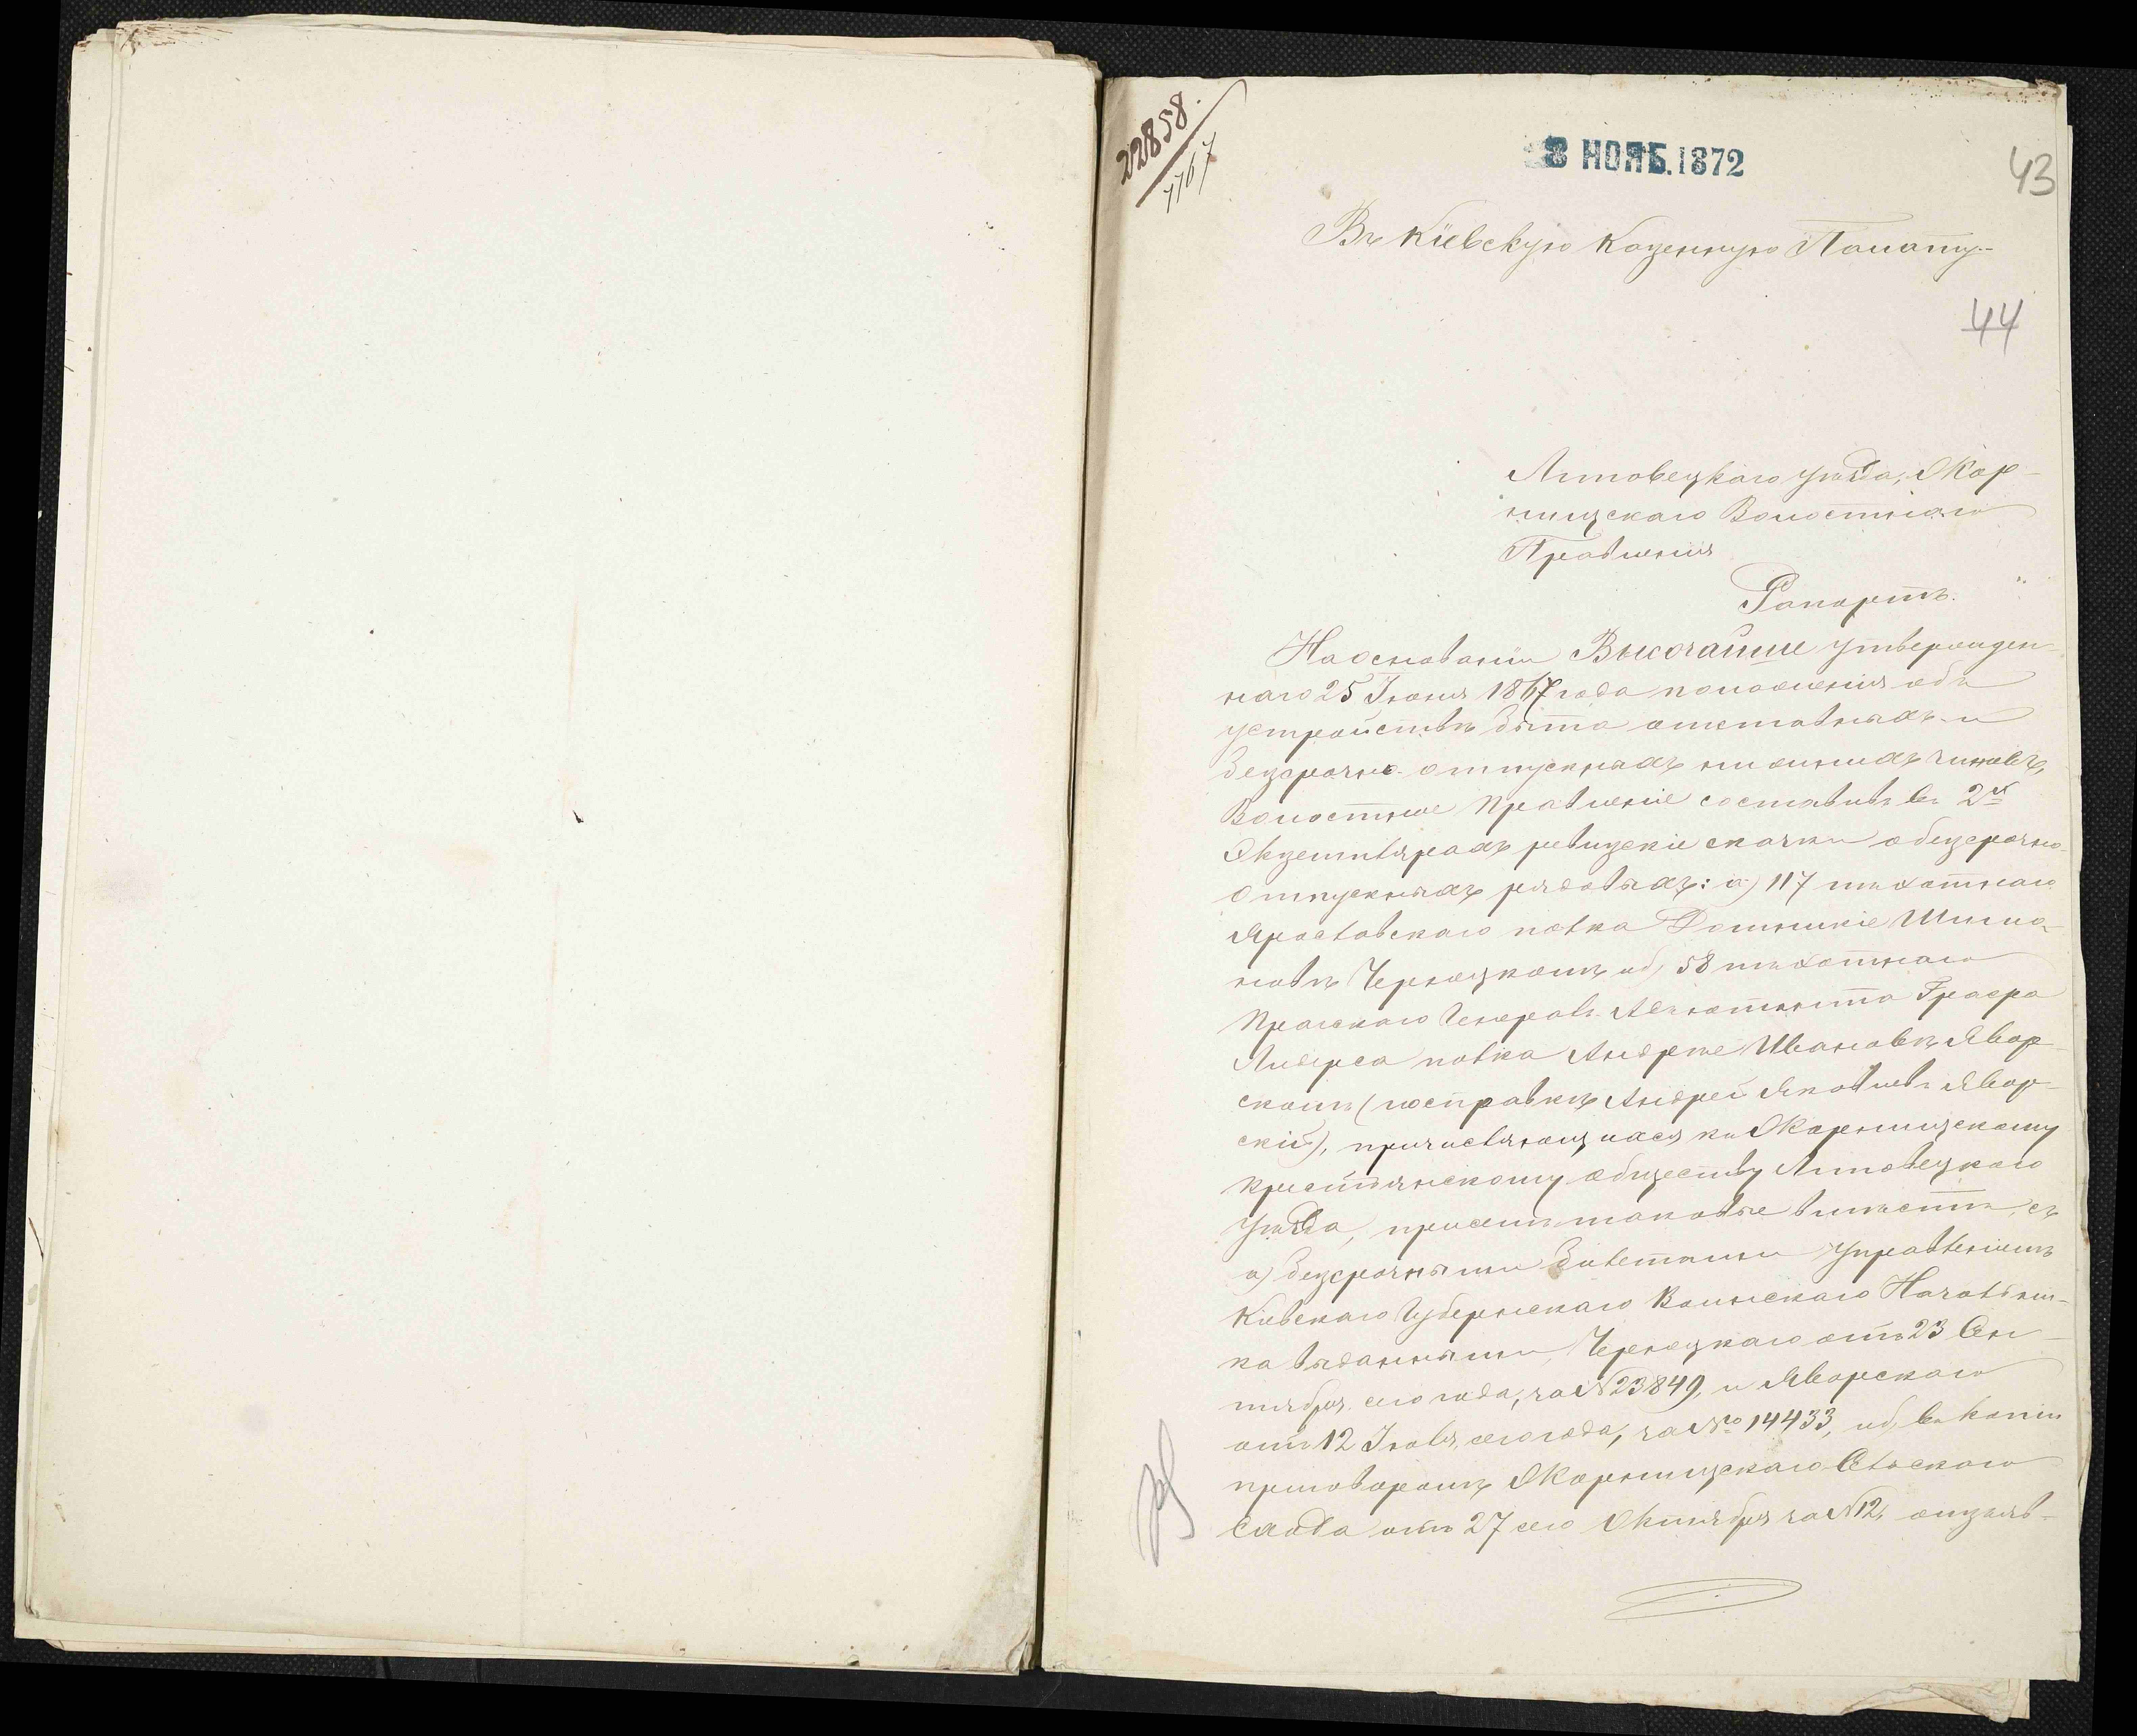 22858.
7767
8 НОЯБ. 1872
43
Въ Кіевскую Казенную Палату
44
Липовецкаго уѣзда, Скор-
ницскаго Волостнаго
Правленія
Рапортъ.
На основаніи Высочайше утвержден-
наго 25 Іюня 1867 года положенія объ
устройствѣ быта отставныхъ и
безсрочно отпускныхъ нижнихъ чиновъ,
Волостное Правленіе составивъ въ 2х
Экземплярахъ ревизскіе сказки о безсрочно-
отпускныхъ рядовыхъ: а) 117 пѣхотнаго
Ярославскаго полка Доминикіе Шимо-
новѣ Чернецкомъ и б) 58 пѣхотнаго
Прагскаго Генералъ Адъютанта Графа
Лидерса полка Андрее Ивановѣ Явор-
скомъ (поправкѣ Андрей Яковлевъ Явор-
скій), причисляющихся къ Скорницскому
крестьянскому обществу Липовецкаго
уѣзда, при семъ таковые вмѣстѣ съ
а) безсрочными билетами Управленіемъ
Кіевскаго Губернскаго Воинскаго Начальни-
ка выданными, Чернецкаго отъ 23 Сен-
тября сего года, за № 23849, и Яворскаго
отъ 12 Іюля, сего года, за № 14433, и б) въ копіи
приговоромъ Скорницскаго Сельскаго
схода отъ 27 сего Октября за № 12,